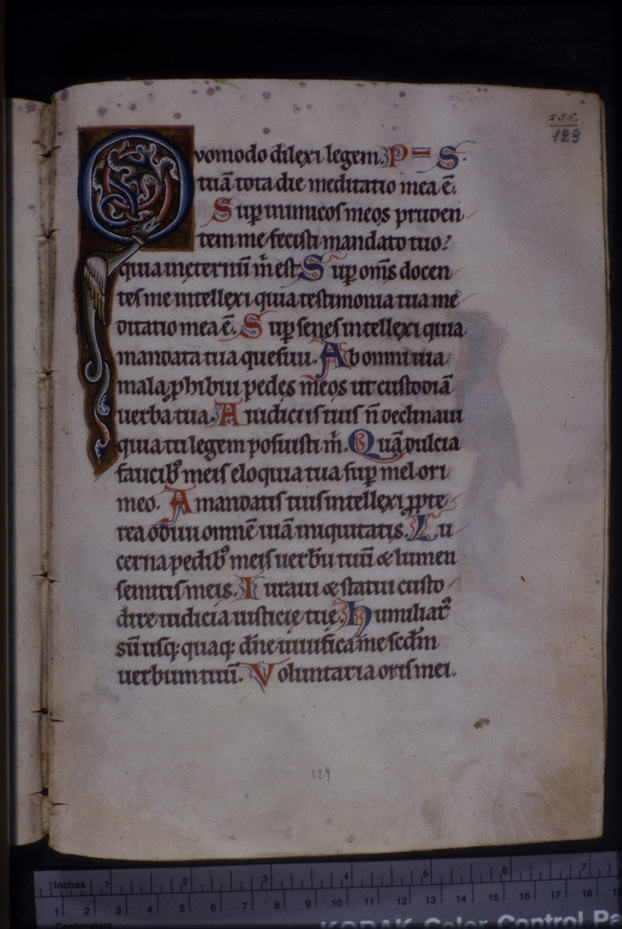 255.
129
Qvomodo dilexi legem. PS
tuā tota die meditatio mea ē.
Sup inimicos meos pruden
tem me fecisti mandato tuo:
quia in eternū m̄ est. Sup om̄s docen
tes me intellexi quia testimonia tua me
ditatio mea ē. Sup senes intellexi quia
mandata tua quesiui. Ab omni uia
mala phibui pedes meos ut custodiā
uerba tua. A iudiciis tuis n̄ declinaui
quia tu legem posuisti m̄. Quā dulcia
faucib; meis eloquia tua sup mel ori
meo. A mandatis tuis intellexi ppte
rea odiui omnē uiā iniquitatis. Lu
cerna pedib; meis uerbū tuū & lumen
semitis meis. Iuraui & statui custo
dire iudicia iusticię tuę. Humiliat
sū usq; quaq; dn̄e uiuifica me scd̄m
uerbum tuū. Voluntaria oris mei.
129
Inches 1 2 3 4 5 6 7
1 2 3 4 5 6 7 8 9 10 11 12 13 14 15 16 17 18
Centimetres
KODAK Color Control Pa